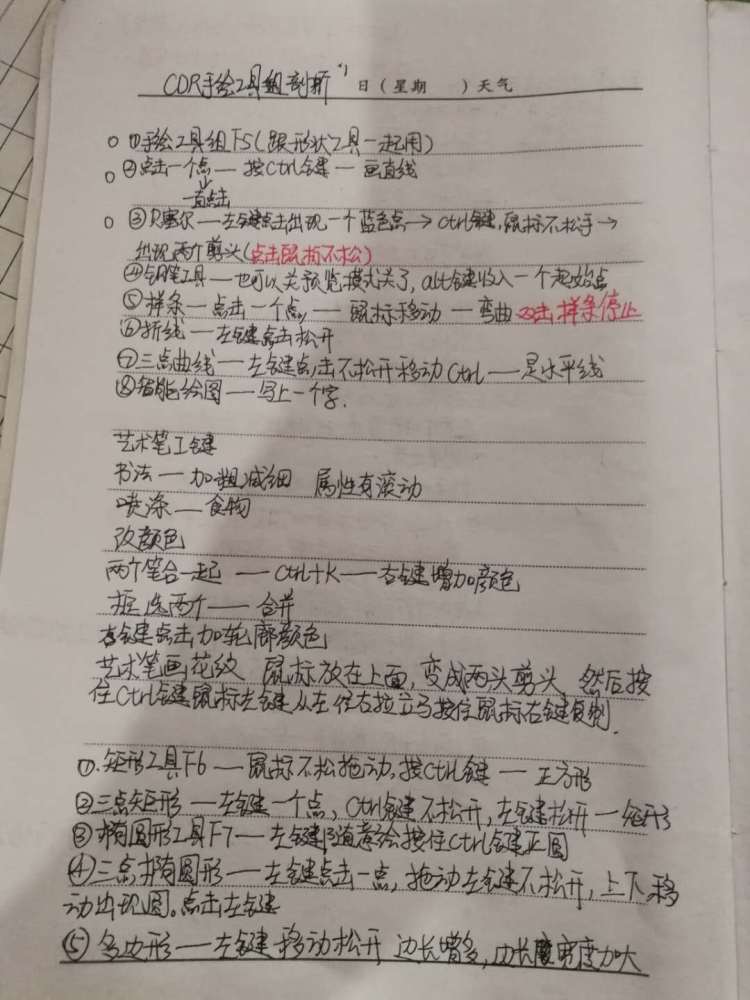 CDR手绘工具组剖析 日(星期 )天气
①手绘工具组F5(跟形状工具一起用)
②点击一个点—按Ctrl键—画直线
一直点击
③贝塞尔—左键点击出现一个蓝色点→Ctrl键,鼠标不松手→
出现两个剪头(点击鼠标不松)
④钢笔工具—也可以关预览模式关了,alt键收入一个起始点
⑤样条—点击一个点,—鼠标移动—弯曲 双击样条停止
⑥折线—左键点击松开
⑦三点曲线—左键点击不松开移动Ctrl—是水平线
⑧智能绘图—写上一个字.
艺术笔工键
书法—加粗减细 属性有滚动
喷涂—食物
改颜色
两个笔合一起—Ctrl+K—右键增加颜色
框选两个—合并
右键点击加轮廓颜色
艺术笔画花纹 鼠标放在上面,变成两头剪头,然后按
住Ctrl键鼠标左键从左往右拉立马按住鼠标右键复制.
①.矩形工具F6—鼠标不松拖动,按Ctrl键—正方形
②三点矩形—左键一个点,Ctrl键不松开,左键松开—矩形
③椭圆形工具F7—左键随意绘按住Ctrl键正圆
④三点椭圆形—左键点击一点,拖动左键不松开,上下移
动出现圆。点击左键
⑤多边形—左键移动松开 边长增多,边长宽度加大